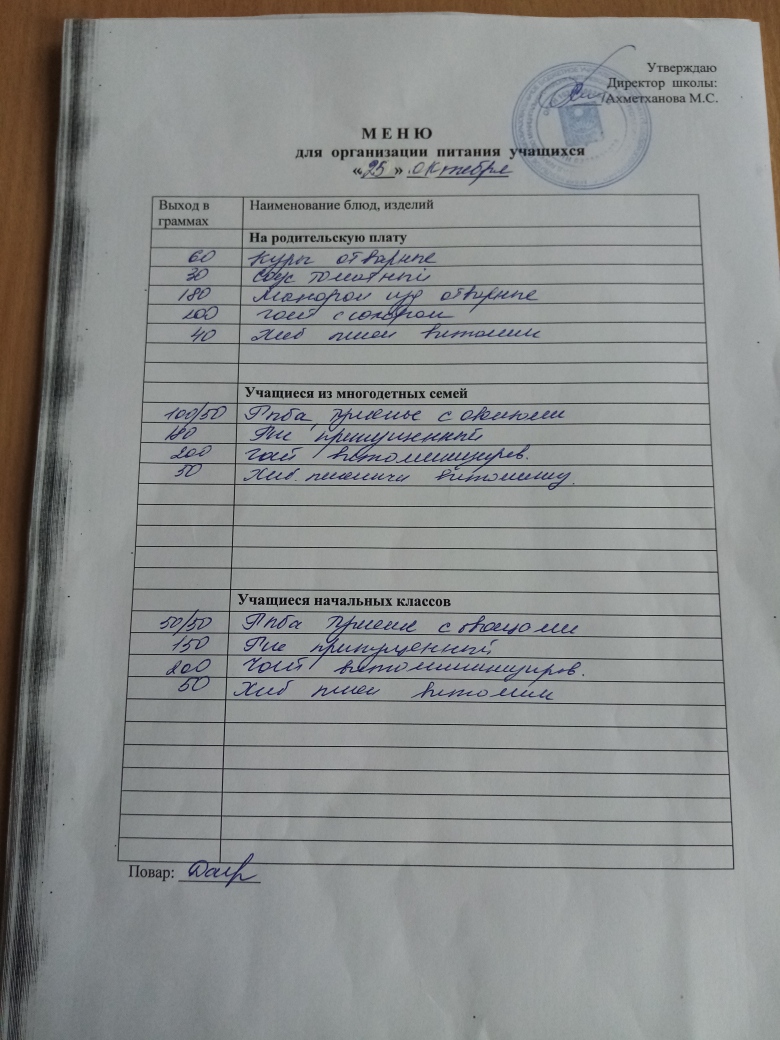 Утверждаю
Директор школы:
Ахметханова М.С.
М Е Н Ю
для организации питания учащихся
«25» октября
Выход в граммах Наименование блюд, изделий
На родительскую плату
60 Куры отварные
30 Соус томатный
180 Макарон изд отварные
200 Чай с сахаром
40 Хлеб пшен витамин
Учащиеся из многодетных семей
100/50 Рыба, тушеные с овощами
180 Рис припущенный
200 Чай витаминизиров.
50 Хлеб. пшенич витамину.
Учащиеся начальных классов
50/50 Рыба тушеные с овощами
150 Рис припущенный
200 Чай витаминизиров.
50 Хлеб пшен витамин
Повар: